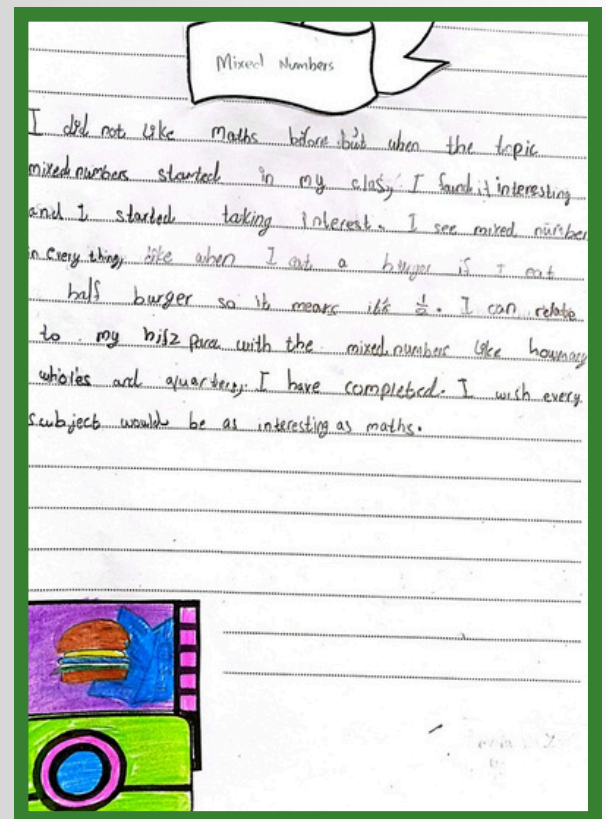 Mixed Numbers
I did not like maths before but when the topic
mixed numbers started in my class, I found it interesting
and I started taking interest. I see mixed number
in every thing, like when I eat a burger if I eat
half burger so it means it's 1/2. I can relate
to my hifz para with the mixed numbers like howmany
wholes and quarters, I have completed. I wish every
subject would be as interesting as maths.